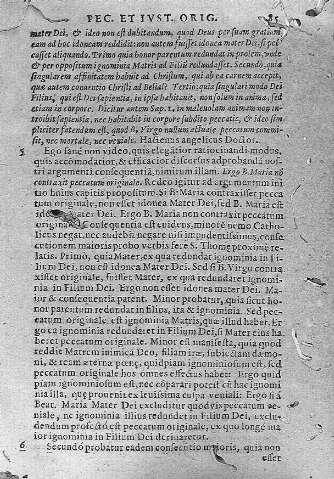 PEC. ET IVST. ORIG. 85
mater Dei, & ideo non est dubitandum, quod Deus per suam gratiam
eam ad hoc idoneam reddidit: non autem fuisset idonea mater Dei, si pec
casset aliquando. Tum quia honor parentum redundat in prolem, vnde
& per oppositum ignominia Matris ad Filium redundasset. Secundo, quia
singularem affinitatem habuit ad Christum, qui ab ea carnem accepit,
quæ autem conuentio Christi ad Belial? Tertio; quia singulari modo Dei
Filius, qui est Dei sapientia, in ipsa habitauit, non solum in anima, sed
etiam in corpore. Dicitur autem Sap. 1. in maleuolam animam non in-
troibit sapientia, nec habitabit in corpore subdito peccatis, & ideo sim
pliciter fatendum est, quod B. Virgo nullum actuale peccatum commi-
sit, nec mortale, nec veniale. Hactenus angelicus Doctor.
5 Ego sane non video, quis elegatior ratiocinandi modus,
quis accomodatior, & efficacior discursus ad probandū nost-
trī argumenti consequentiā, nimirum illam. Ergo B. Maria nō
contraxit peccatum originale. Redeo igitur ad argumentum ini
tio huius capitis propositum. Si B. Maria contraxisset pecca
tum originale, non esset idonea Mater Dei, sed B. Maria est
idonea Mater Dei. Ergo B. Maria non contraxit peccatum
originale. Consequentia est euidens, minorē nemo Catho-
licus negat, nec fidelis negare nisi impudentissimus, conse-
cutionem maioris probo verbis fere S. Thomæ proxime re-
latis. Primo, quia Mater, ex qua redundat ignominia in Fi-
lium Dei, non est idonea Mater Dei. Sed si B. Virgo contra
xisset originale, fuisset Mater, ex qua redundaret ignomi-
nia in Filium Dei. Ergo non esset idonea mater Dei. Ma-
ior & consequentia patent. Minor probatur, quia sicut ho-
nor parentum redundat in filios, ita & ignominia. Sed pec-
catum originale est ignominia Matris, quæ illud habet. Er-
go ea ignominia redundaret in Filium Dei, si Mater eius ha
beret peccatum originale. Minor est manifesta, quia quod
reddit Matrem inimicā Deo, filiam iræ, subiectam dæmo-
ni, & ream æternæ pœnę, quidpiam ignominiosum est, sed
peccatum originale hos omnes effectus habet. Ergo quid
piam ignominiosum est, nec cōparari potest cū hac ignomi
nia illa, quæ prouenit ex leuissima culpa veniali: Ergo si à
Beat. Maria Mater Dei excluditur quoduis peccatum ve-
niale, ne ignominia illius redundet in Filium Dei, exclu-
dendum profectò est peccatum originale, ex quo longè ma
ior ignominia in Filium Dei deriuaretur.
6 Secundò probatur eadem consecutio maioris, quia non
esset